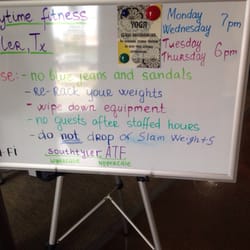 ytime fitness
ler, Tx
YOGA
Monday 7pm
Wednesday
Tuesday 6pm
Thursday
se:- no blue jeans and sandals
- Re-Rack your weights
- wipe down equipment
- no guests after staffed hours
- do not drop or Slam Weights
i-Fi southtyler ATF
uppercase uppercase